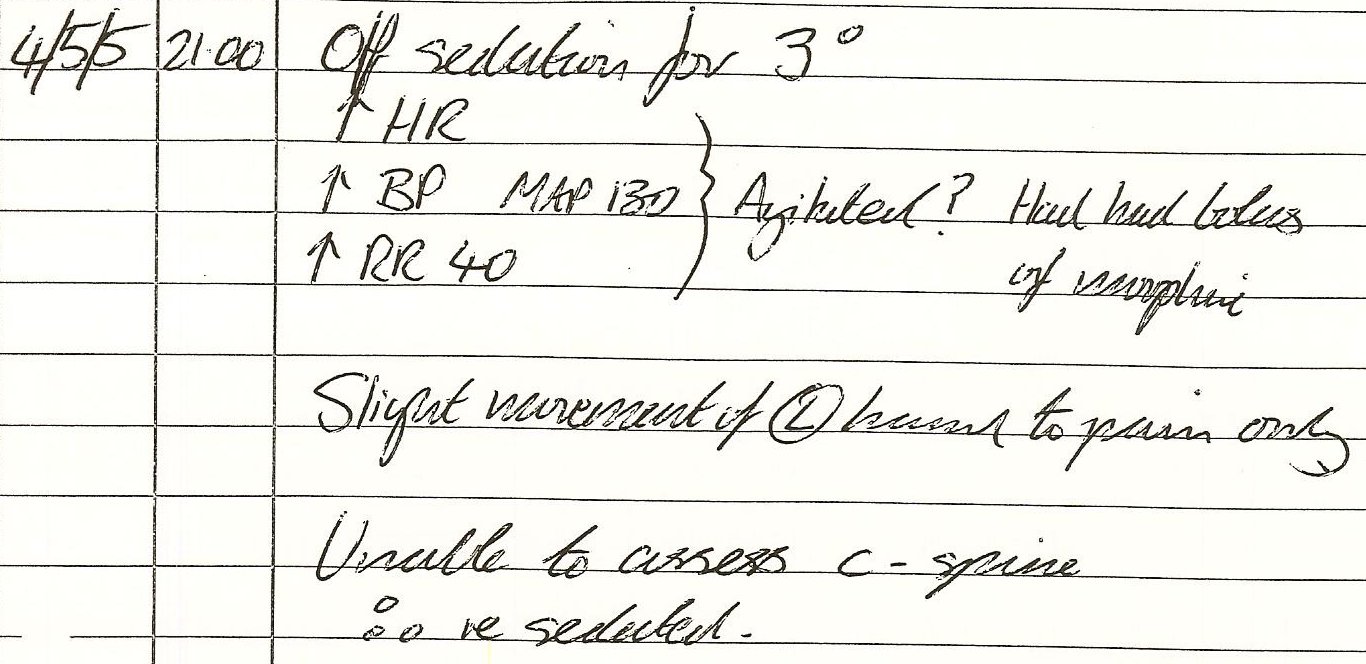 4/5/5 21:00 Off sedation for 3°
↑ HR
↑ BP MAP 130 } Agitated? Had had bolus
↑ RR 40 of morphine
Slight movement of Ⓛ hand to pain only
Unable to assess c-spine
∴ re sedated.